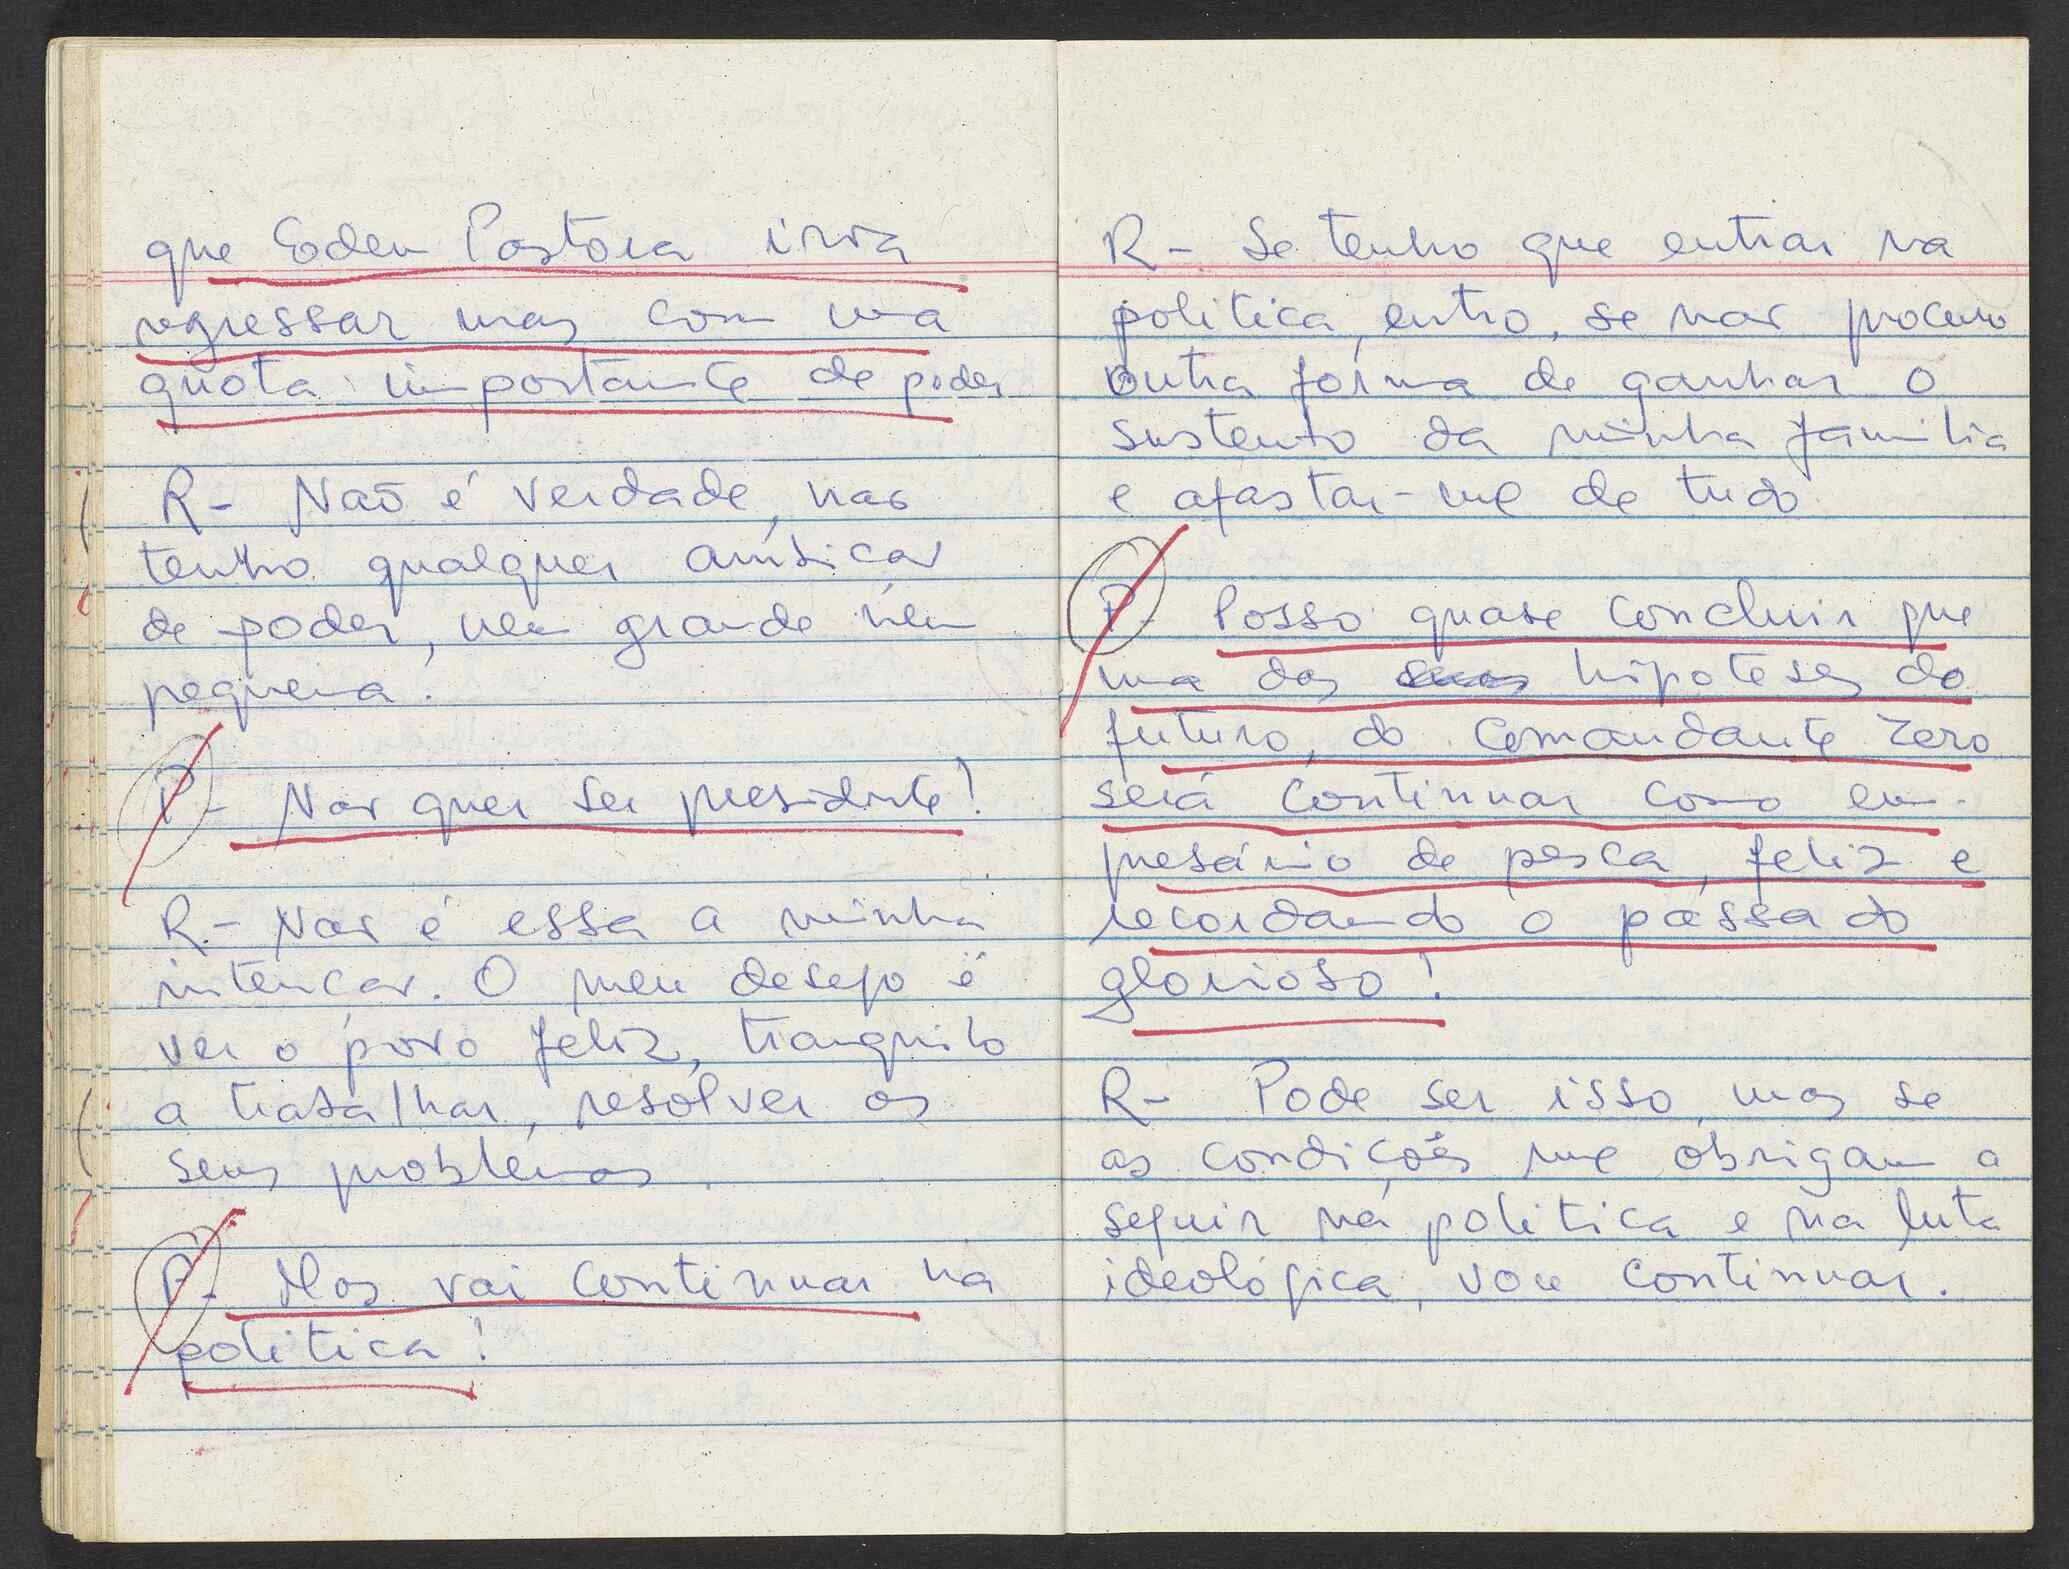 que Eden Pastora iria
regressar mas com uma
quota importante de poder
R- Não é verdade, não
tenho qualquer ambição
de poder, nem grande nem
pequena.
P- Não quer ser presidente!
R- Não é essa a minha
intenção. O meu desejo é
ver o povo feliz, tranquilo
a trabalhar, resolver os
seus problemas.
P- Mas vai continuar na
politica!
R- Se tenho que entrar na
politica, entro, se não procuro
outra forma de ganhar o
sustento da minha familia
e afastar-me de tudo
P- Posso quase concluir que
uma das suas hipoteses do
futuro, do Comandante Zero
será continuar como em-
presário de pesca, feliz e
recordando o passado
glorioso!
R- Pode ser isso, mas se
as condições me obrigam a
seguir na politica e na luta
ideológica, vou continuar.